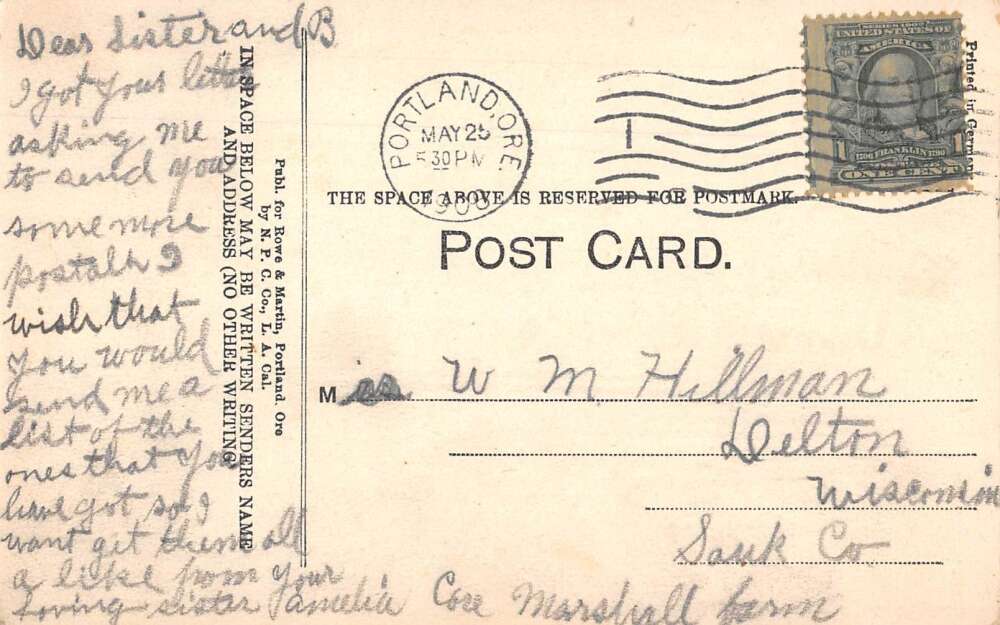 Dear Sister and B
I got your letter
asking me
to send you
some more
postals I
wish that
you would
send me a
list of the
ones that you
have got so I
want get them all
a like from your
loving sister Pamelia
IN SPACE BELOW MAY BE WRITTEN SENDERS NAME
AND ADDRESS (NO OTHER WRITING)
Publ. for Rowe & Martin, Portland. Ore
by N. P. C. Co., L. A. Cal.
PORTLAND, ORE.
MAY 25
5 30 PM
190
1
SERIES 1902
UNITED STATES OF
AMERICA
1706 FRANKLIN 1790
1 1
ONE CENT
Printed in Germany
THE SPACE ABOVE IS RESERVED FOR POSTMARK.
POST CARD.
M W M Hillman
Delton
Wisconsin
Sauk Co
Care Marshall farm